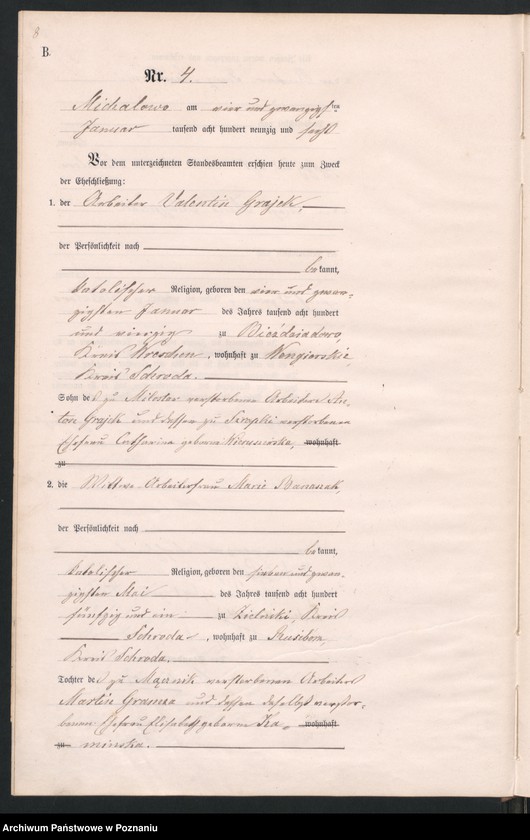 8
B.
Nr. 4.
Michalowo am vier und zwanzigsten
Januar tausend acht hundert neunzig und sechs
Vor dem unterzeichneten Standesbeamten erschien heute zum Zweck
der Eheschließung:
1. der Arbeiter Valentin Grajek,
der Persönlichkeit nach
bekannt,
katholischer Religion, geboren den vier und zwan-
zigsten Januar des Jahres tausend acht hundert
und vierzig zu
Kreis Wreschen, wohnhaft zu Wengierskie,
Kreis Schroda.
Sohn des zu Miloslaw verstorbenen Arbeiters An-
ton Grajek und dessen zu verstorbenen
Ehefrau Catharina geborene wohnhaft
zu
2. die Wittwe Arbeiterfrau Marie Banaszak,
der Persönlichkeit nach
bekannt,
katholischer Religion, geboren den sieben und zwan-
zigsten Mai des Jahres tausend acht hundert
fünfzig und ein zu Zielniki Kreis
Schroda, wohnhaft zu Rusibórz,
Kreis Schroda.
Tochter des zu verstorbenen Arbeiters
Martin und dessen daselbst verstor-
benen Ehefrau Elisabeth geborene Ka- wohnhaft
zu minska.
Archiwum Państwowe w Poznaniu